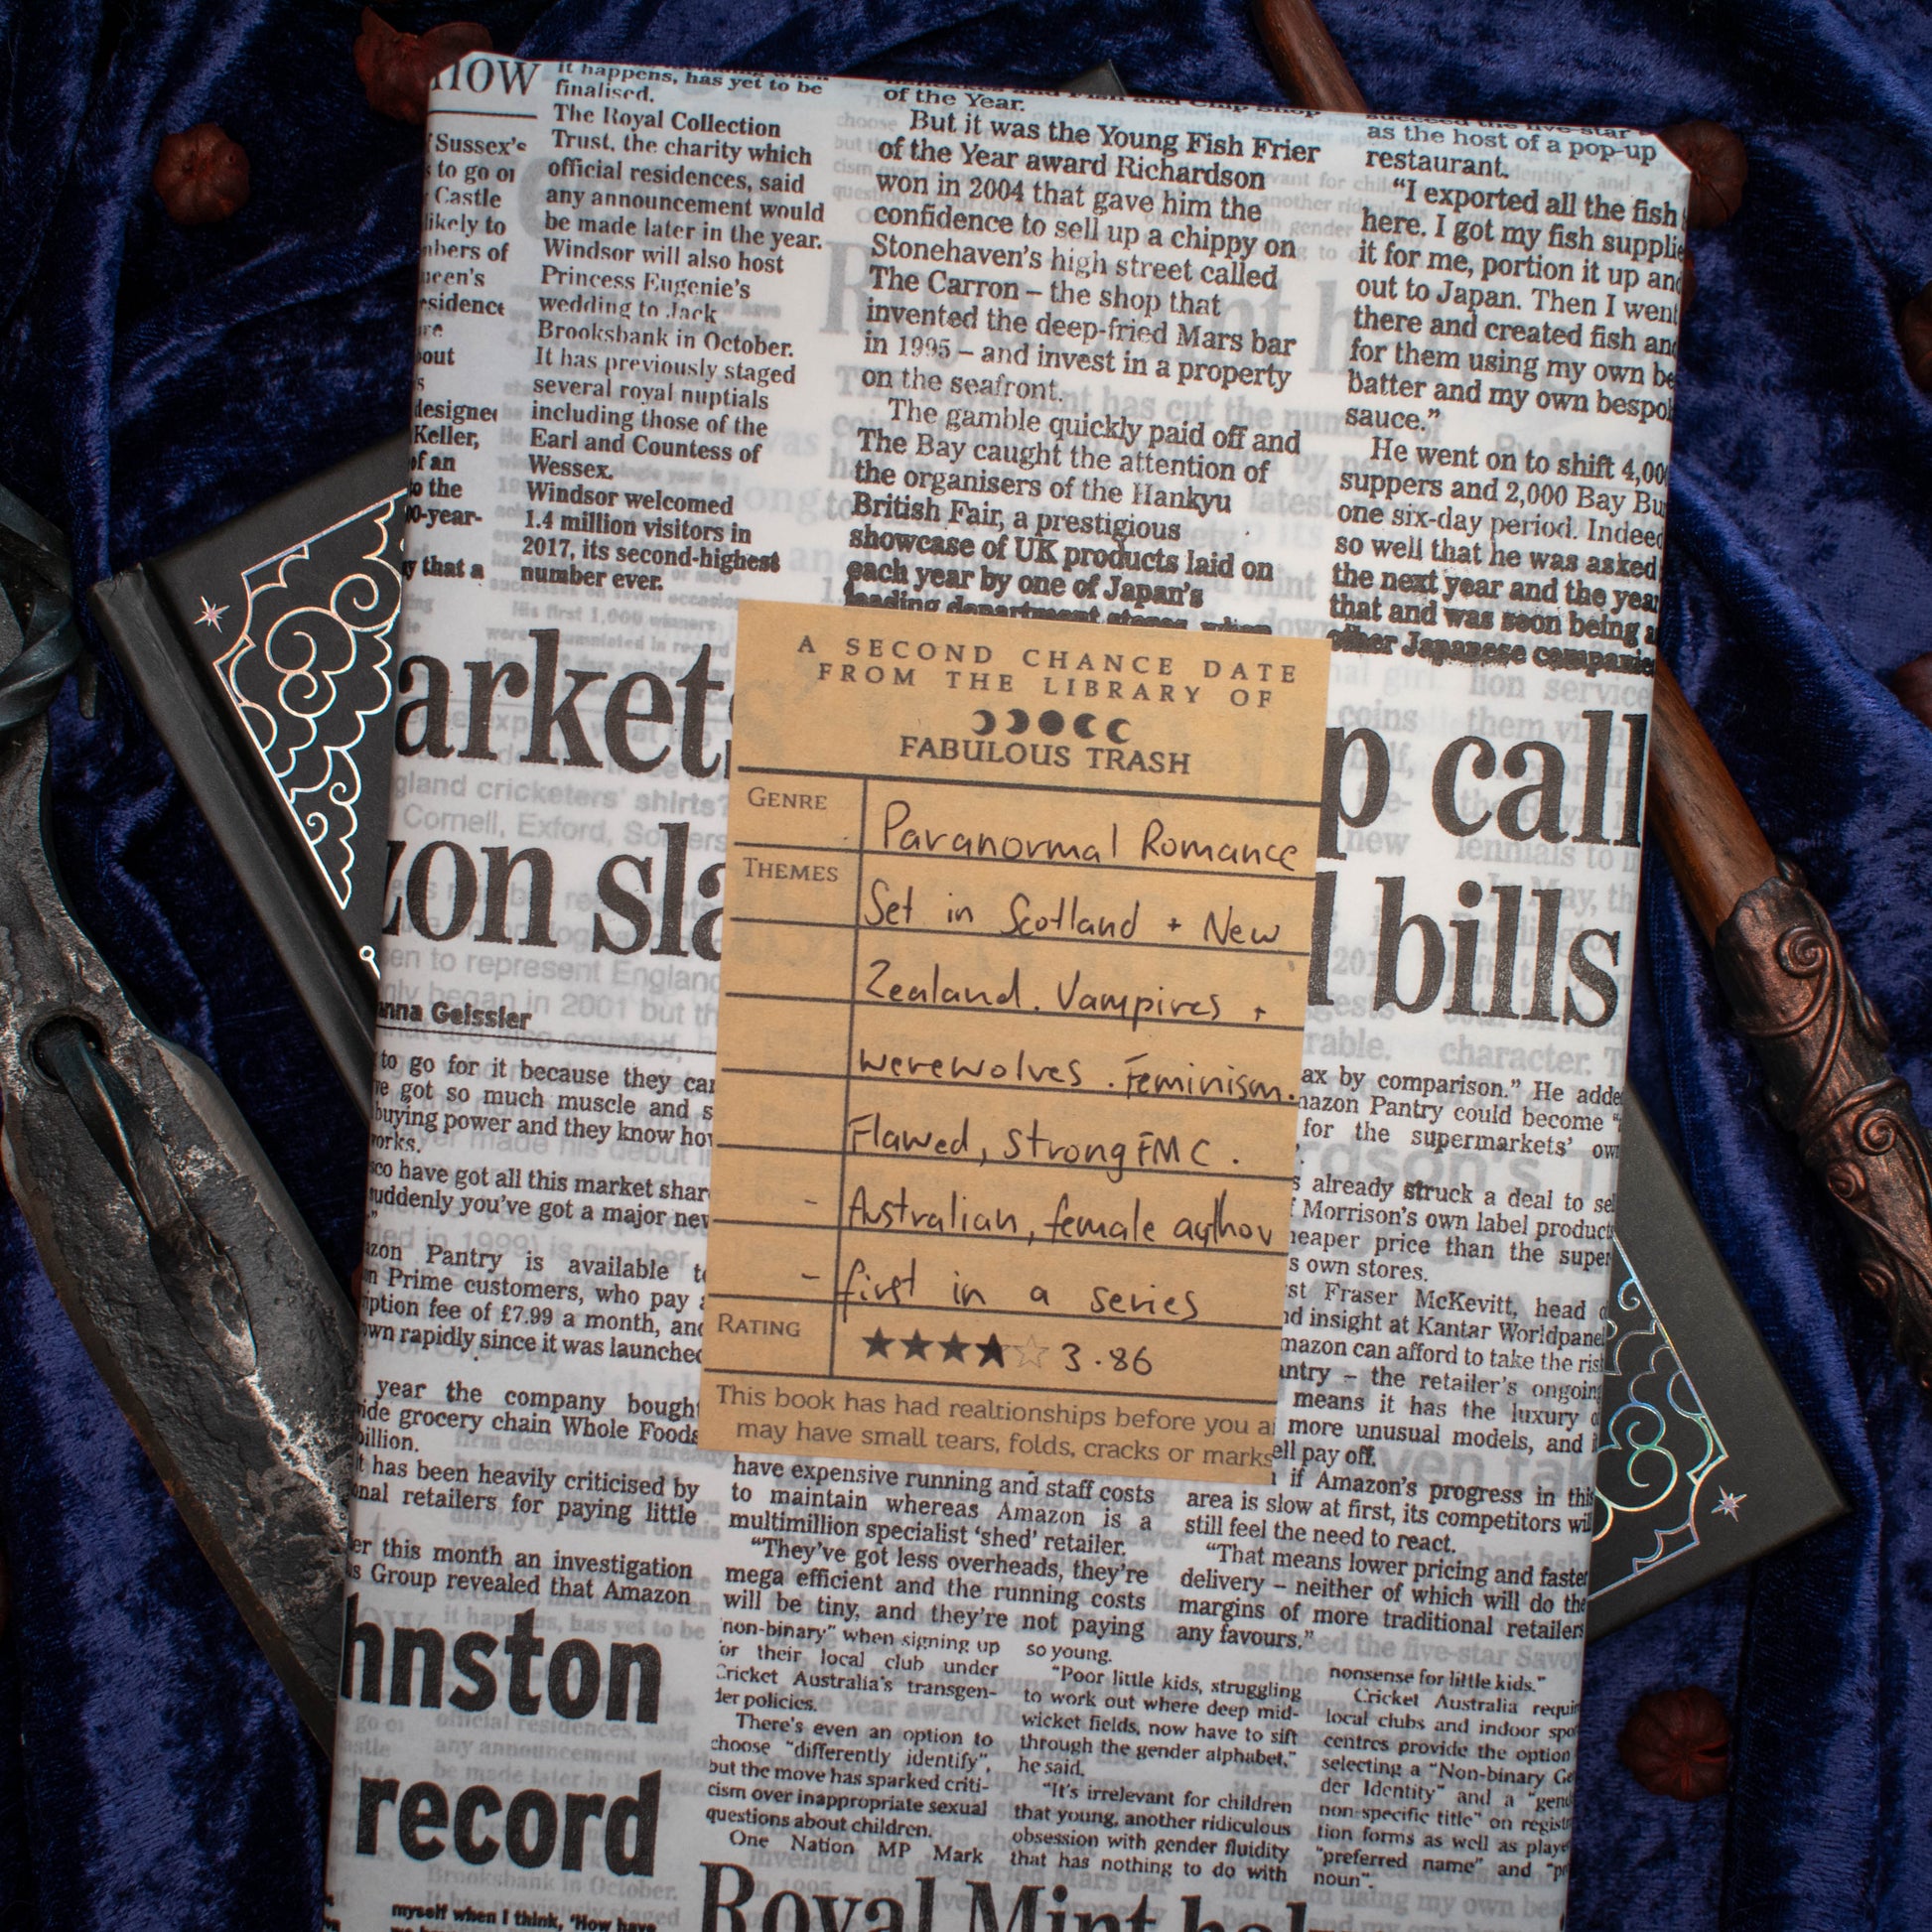 now
Sussex's
to go
Castle
likely to
of
residence
Keller,
of an
to the
that a
it happens, has yet to be
finalised.
The Royal Collection
Trust, the charity which
official residences, said
any announcement would
be made later in the year.
Windsor will also host
Princess Eugenie's
wedding to Jack
Brooksbank in October.
It has previously staged
several royal nuptials
including those of the
Earl and Countess of
Wessex.
Windsor welcomed
1.4 million visitors in
2017, its second-highest
number ever.
of the Year.
But it was the Young Fish Frier
of the Year award Richardson
won in 2004 that gave him the
confidence to sell up a chippy on
Stonehaven's high street called
The Carron – the shop that
invented the deep-fried Mars bar
in 1995 – and invest in a property
on the seafront.
The gamble quickly paid off and
The Bay caught the attention of
the organisers of the Hankyu
British Fair, a prestigious
showcase of UK products laid on
each year by one of Japan's
leading department stores, when
succeed the five-star
as the host of a pop-up
restaurant.
“I exported all the fish
here. I got my fish
it for me, portion it up and
out to Japan. Then I went
there and created fish and
for them using my own
batter and my own
sauce.”
He went on to shift
suppers and 2,000 Bay
one six-day period. Indeed
so well that he was asked
the next year and the year
that and was soon being
other Japanese companies
arkets
zon sla
p call
bills
A SECOND CHANCE DATE
FROM THE LIBRARY OF
FABULOUS TRASH
GENRE
Paranormal Romance
THEMES
Set in Scotland + New
Zealand. Vampires +
werewolves. Feminism.
Flawed, strong FMC.
- Australian, female author
- first in a series
RATING
★★★★☆ 3.86
This book has had realtionships before you a
may have small tears, folds, cracks or marks
anna Geissler
to go for it because they can
got so much muscle and
buying power and they know how
works.
have got all this market share
suddenly you've got a major new
Pantry is available to
Prime customers, who pay
fee of £7.99 a month, and
rapidly since it was launched
year the company bought
grocery chain Whole Foods
billion.
It has been heavily criticised by
retailers for paying little
this month an investigation
Group revealed that Amazon
ax by comparison.” He added
Amazon Pantry could become
for the supermarkets' own
already struck a deal to sell
Morrison's own label products
cheaper price than the super
s own stores.
Fraser McKevitt, head
insight at Kantar Worldpanel
Amazon can afford to take the risk
– the retailer's ongoing
means it has the luxury
more unusual models, and
ell pay off.
have expensive running and staff costs
to maintain whereas Amazon is a
multimillion specialist ‘shed’ retailer.
“They've got less overheads, they're
mega efficient and the running costs
will be tiny, and they're not paying
if Amazon's progress in this
area is slow at first, its competitors will
still feel the need to react.
“That means lower pricing and faster
delivery – neither of which will do the
margins of more traditional retailers
any favours.”
hnston
record
non-binary” when signing up
for their local club under
Cricket Australia's transgen-
der policies.
There's even an option to
choose “differently identify”,
but the move has sparked criti-
cism over inappropriate sexual
questions about children.
One Nation MP Mark
so young.
“Poor little kids, struggling
to work out where deep mid-
wicket fields, now have to sift
through the gender alphabet,”
he said.
“It's irrelevant for children
that young, another ridiculous
obsession with gender fluidity
that has nothing to do with
nonsense for little kids.”
Cricket Australia
local clubs and indoor
centres provide the option
selecting a “Non-binary
der Identity” and a
non-specific title” on
tion forms as well as
“preferred name” and
noun”.
myself when I think, ‘How have
Royal Mint